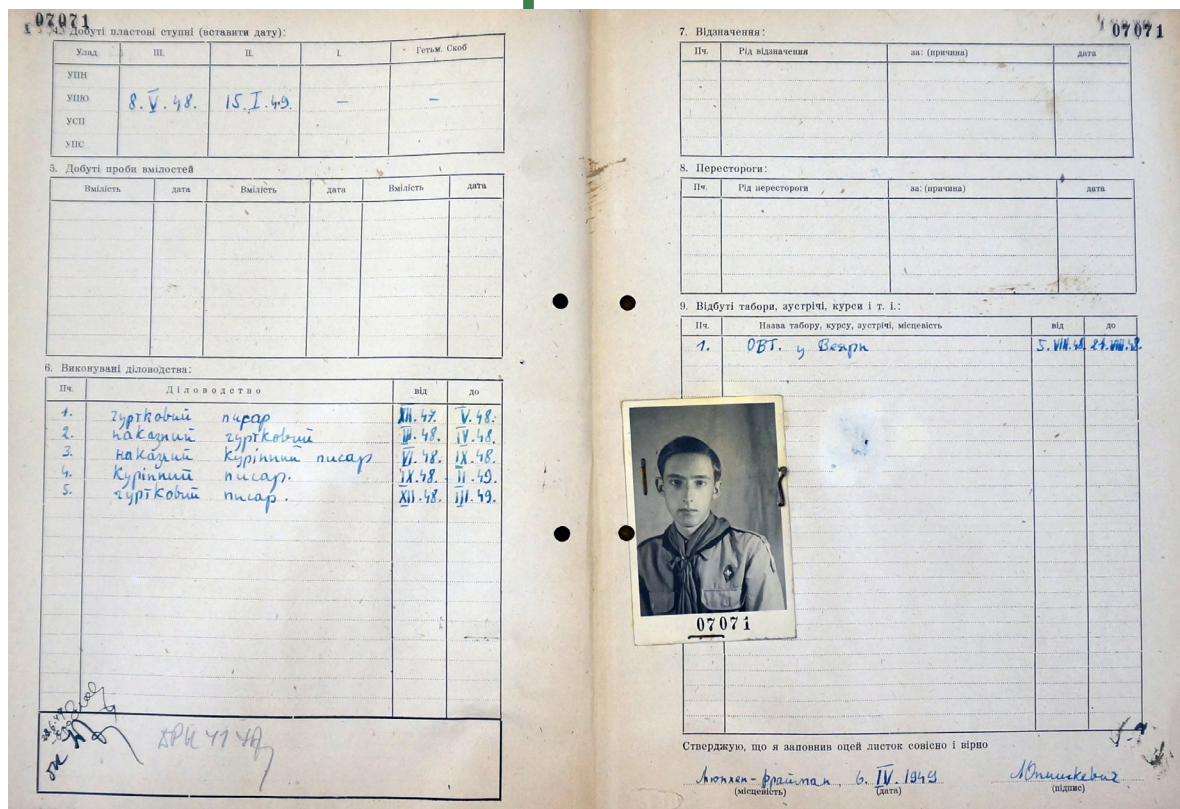 07071
4. Добуті пластові ступні (вставити дату):
Улад III. II. I. Гетьм. Скоб
УПН
УПЮ 8.V.48. 15.I.49. — —
УСП
УПС
5. Добуті проби вмілостей
Вмілість дата Вмілість дата Вмілість дата
6. Виконувані діловодства:
Пч. Діловодство від до
1. гуртковий писар XII.47. V.48.
2. наказний гуртковий IV.48.
3. наказний курінний писар VI.48. IX.48.
4. Курінний писар. IX.48. II.49.
5. гуртковий писар. XII.48. III.49.
07071
7. Відзначення:
Пч. Рід відзначення за: (причина) дата
8. Перестороги:
Пч. Рід перестороги за: (причина) дата
9. Відбуті табори, зустрічі, курси і т. і.:
Пч. Назва табору, курсу, зустрічі, місцевість від до
1. ОВТ. у 5.VIII.48.
07071
Стверджую, що я заповнив оцей листок совісно і вірно
Мюнхен-Фрайман, 6.IV.1949
(місцевість) (дата) (підпис)